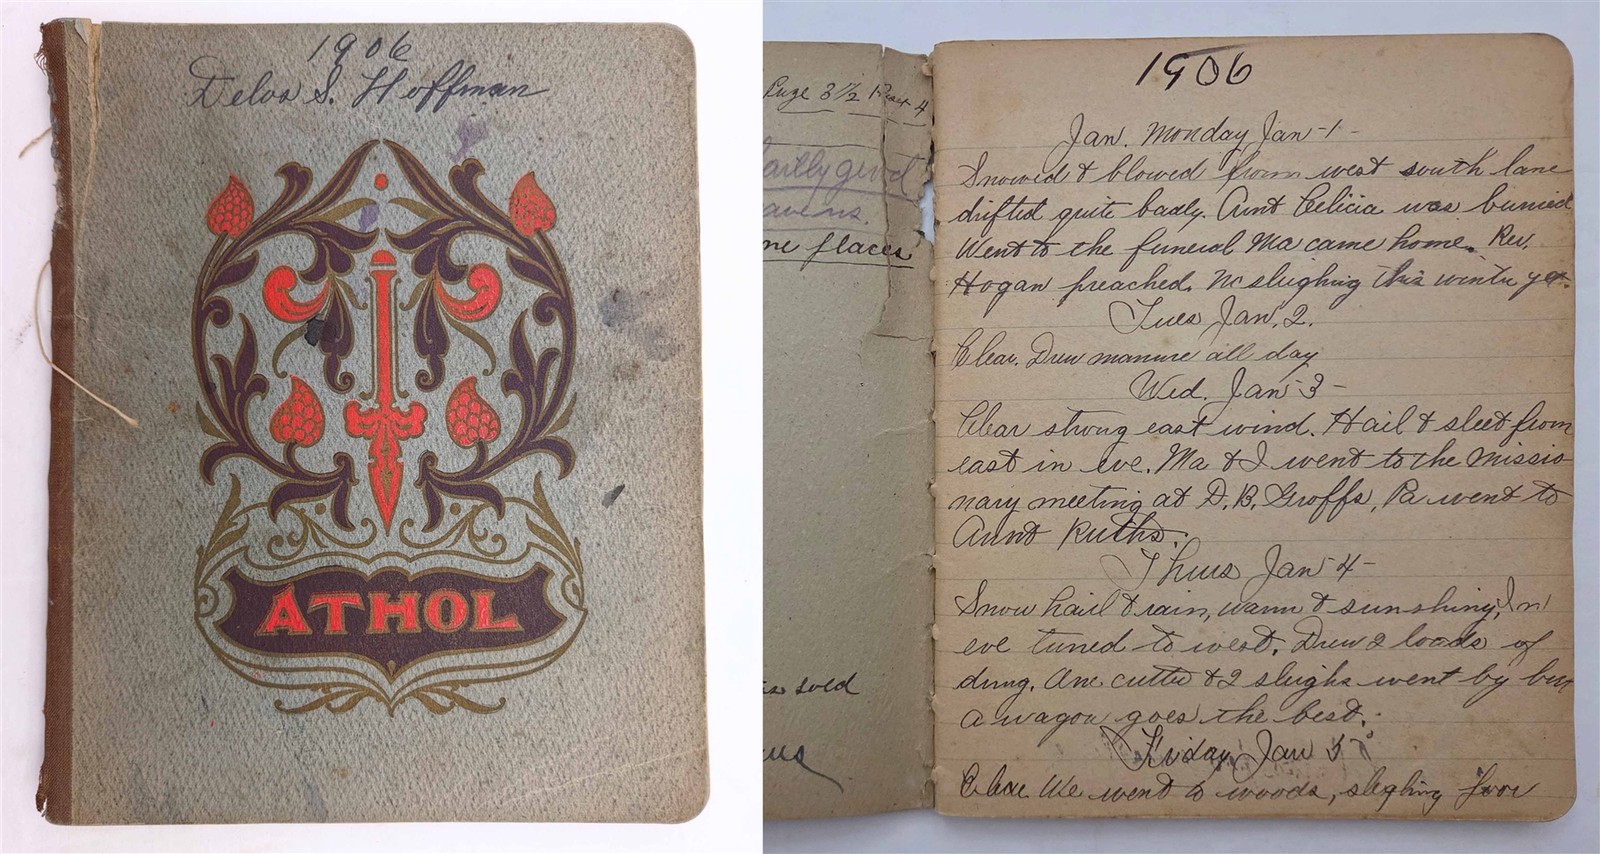 1906
Delos S. Hoffman
ATHOL
Page 3 1/2 4
good
ne places
sold
1906
Jan. Monday Jan - 1 -
Snowed & blowed from west south lane
drifted quite badly. Aunt Celicia was buried
Went to the funeral Ma came home. Rev.
Hogan preached. No sleighing this winter yet.
Tues Jan. 2.
Clear. Drew manure all day
Wed. Jan - 3 -
Clear strong east wind. Hail & sleet from
east in eve. Ma & I went to the missio-
nary meeting at D. B. Groffs, Pa went to
Aunt Ruths.
Thurs Jan - 4 -
Snow hail & rain, warm & sunshiny, In
eve turned to west. Drew 2 loads of
dung. One cutter & 2 sleighs went by but
a wagon goes the best.
Friday Jan 5
Clear We went to woods, sleghing poor